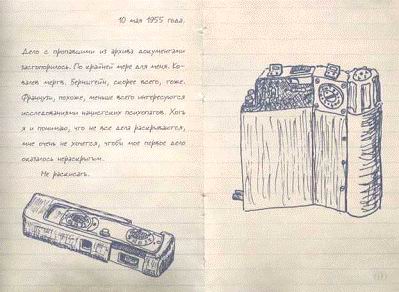 10 мая 1955 года.
Дело с пропавшими из архива документами
застопорилось. По крайней мере для меня. Ко-
валев мертв. Бернштейн, скорее всего, тоже.
Французы, похоже, меньше всего интересуются
исследованиями нацистских психопатов. Хоть
я и понимаю, что не все дела раскрываются,
мне очень не хочется, чтобы мое первое дело
оказалось нераскрытым.
Не раскисать.